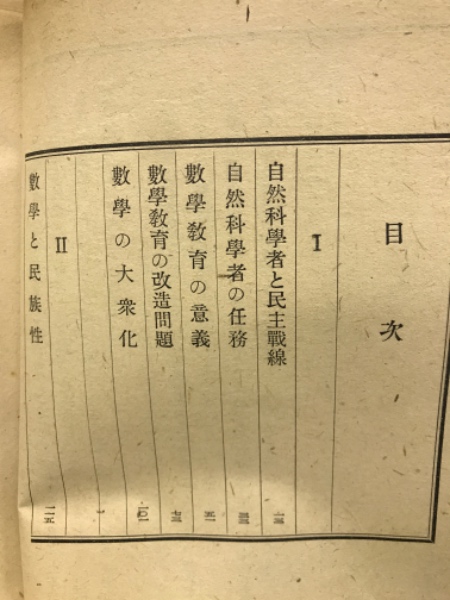 目次
I
自然科學者と民主戰線
自然科學者の任務
數學教育の意義
數學教育の改造問題 七三
數學の大衆化 一〇一
II
數學と民族性 一一五